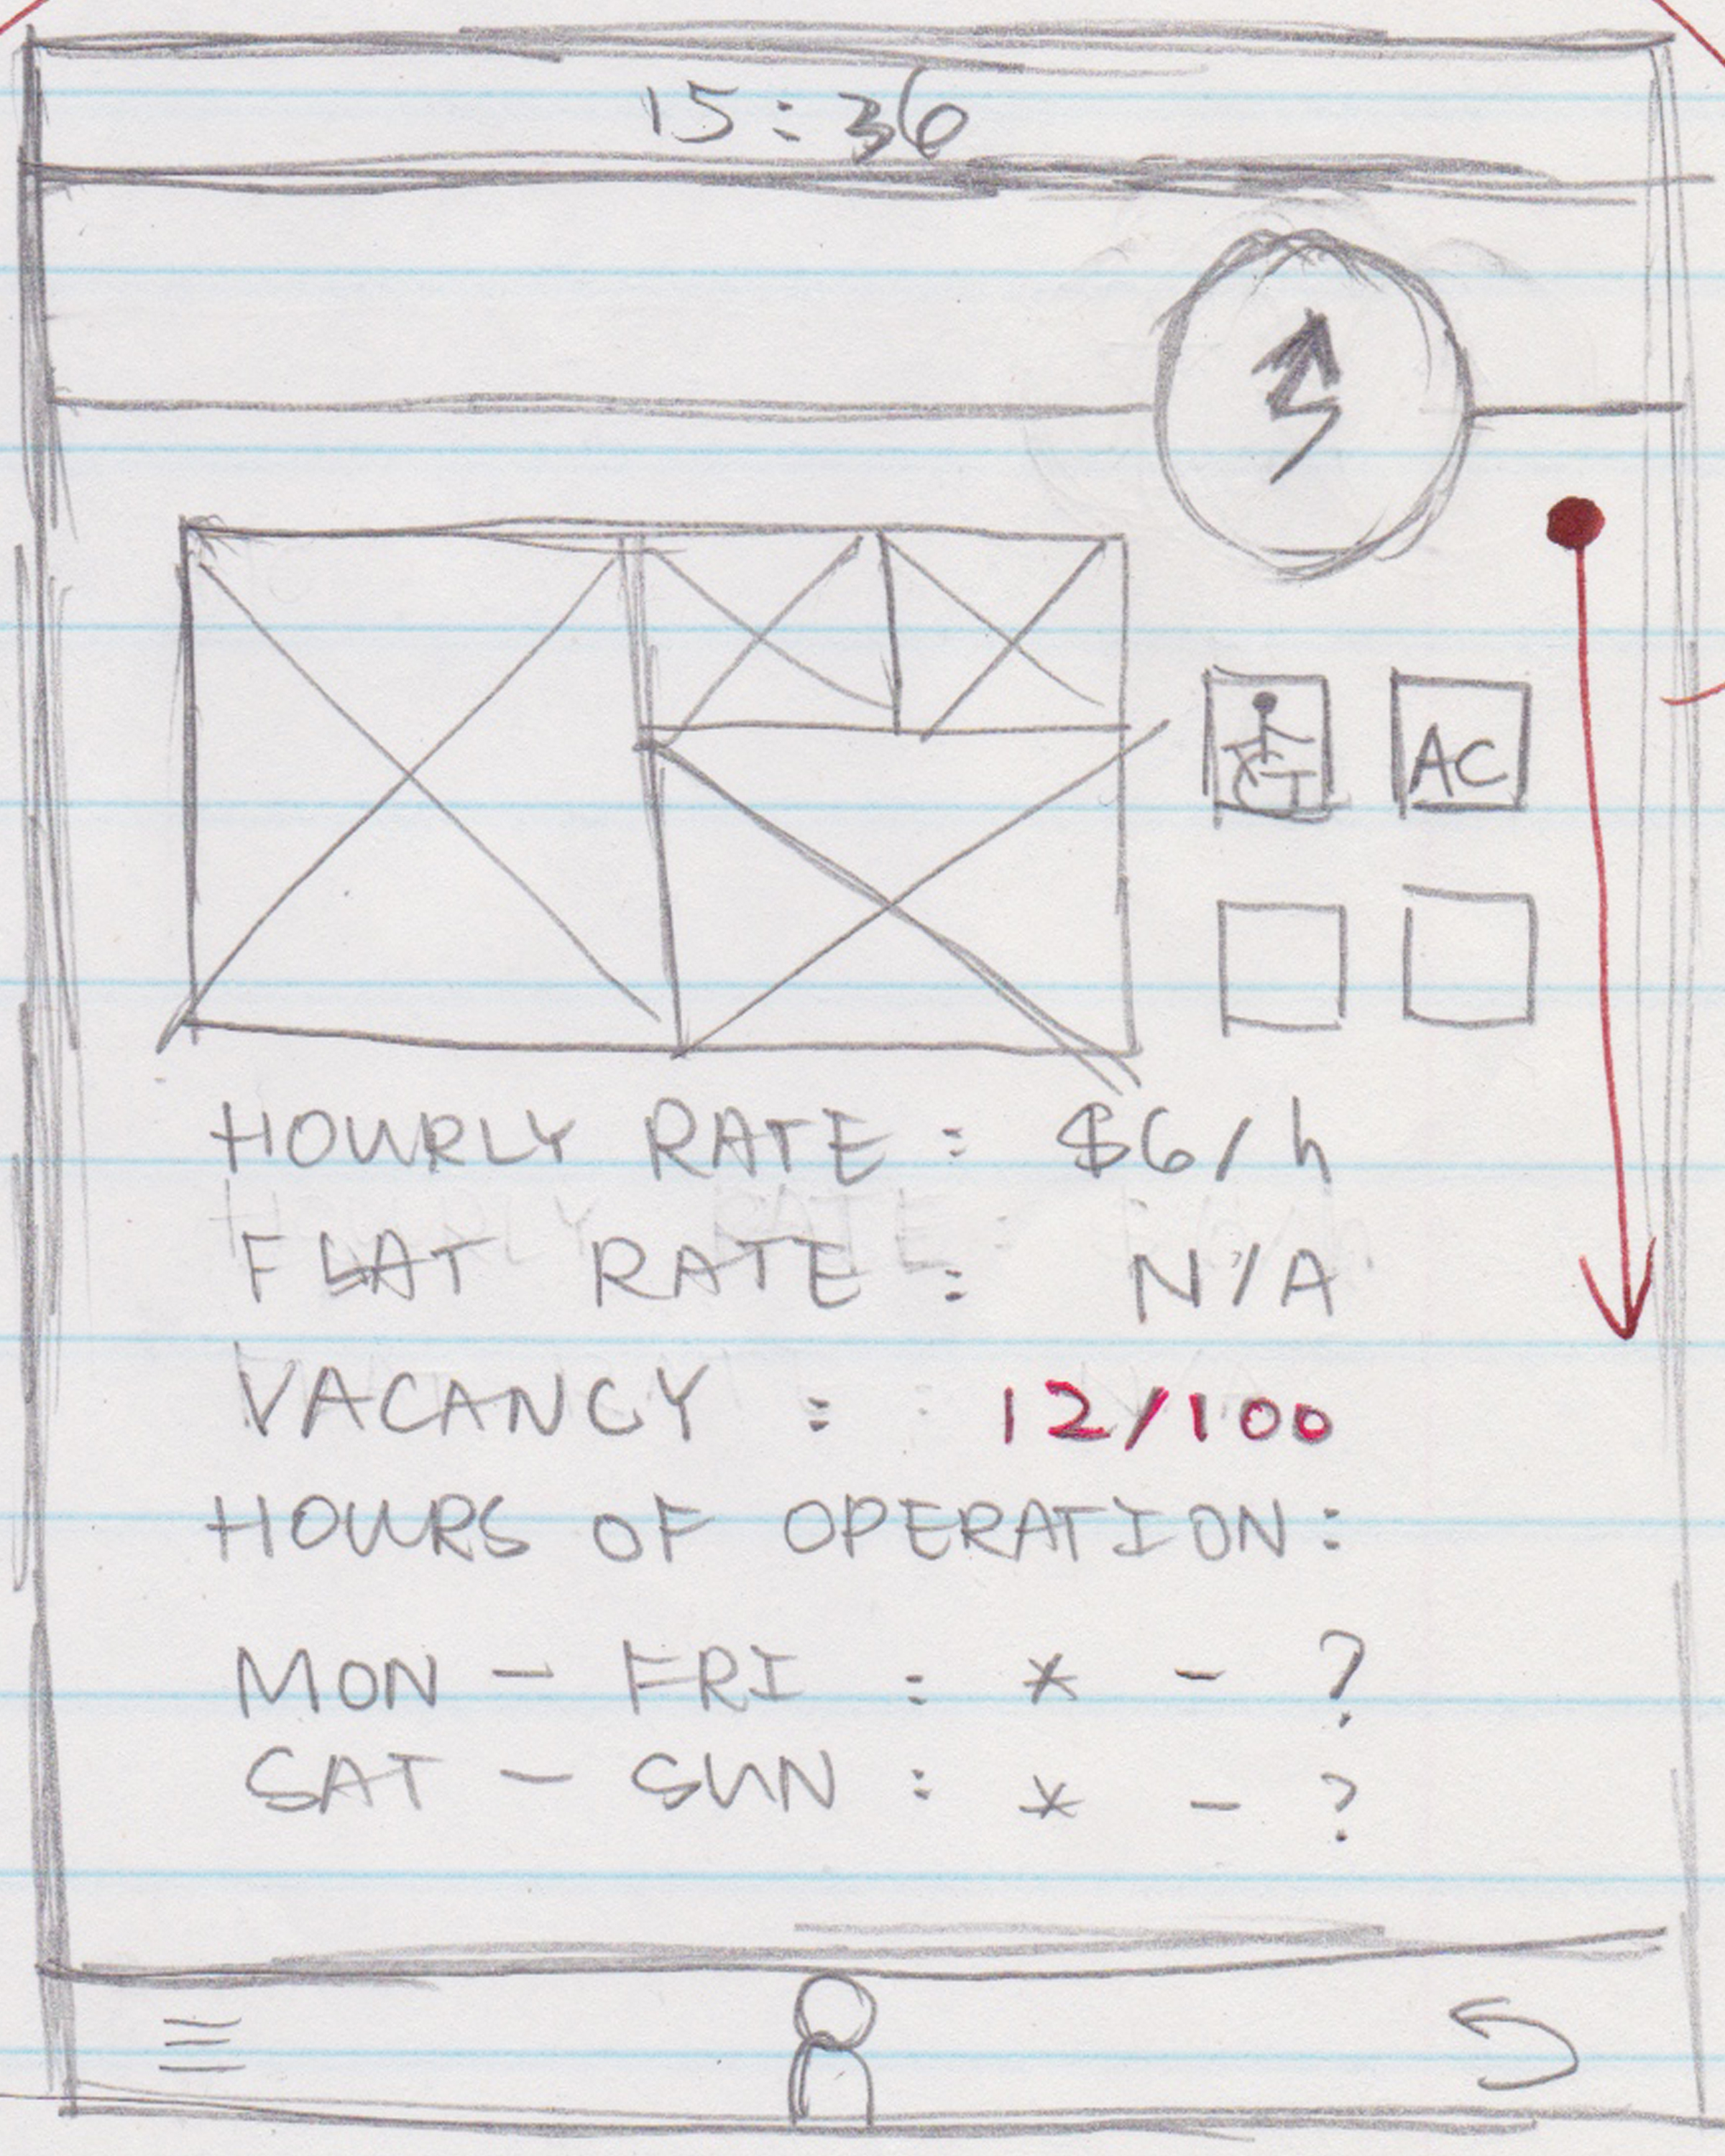 15:36
AC
HOURLY RATE: $6/h
FLAT RATE: N/A
VACANCY: 12/100
HOURS OF OPERATION:
MON - FRI : * - ?
SAT - SUN : * - ?